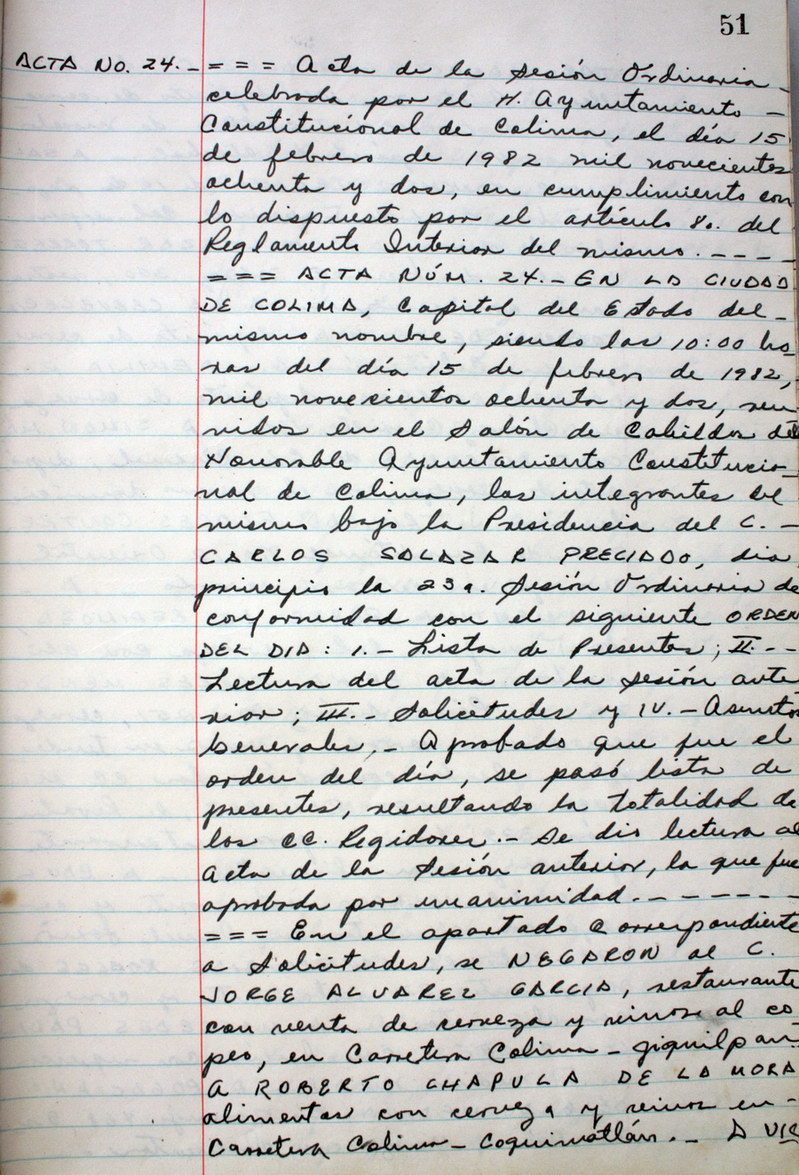 51
ACTA NO. 24.- = = = Acta de la Sesión Ordinaria -
celebrada por el H. Ayuntamiento -
Constitucional de Colima, el día 15
de febrero de 1982 mil novecientos
ochenta y dos, en cumplimiento con
lo dispuesto por el artículo 8o. del
Reglamento Interior del mismo. - - - -
= = = ACTA NÚM. 24.- EN LA CIUDAD
DE COLIMA, Capital del Estado del -
mismo nombre, siendo las 10:00 ho
ras del día 15 de febrero de 1982,
mil novecientos ochenta y dos, reu
nidos en el Salón de Cabildos del
Honorable Ayuntamiento Constitucio-
nal de Colima, los integrantes del
mismo bajo la Presidencia del C. -
CARLOS SALAZAR PRECIADO, dio
principio la 23a. Sesión Ordinaria de
conformidad con el siguiente ORDEN
DEL DIA : 1.- Lista de Presentes ; II.- -
Lectura del acta de la sesión ante
rior ; III.- Solicitudes y IV.- Asuntos
Generales.- Aprobado que fue el
orden del día, se pasó lista de
presentes, resultando la totalidad de
los CC. Regidores.- Se dio lectura al
acta de la Sesión anterior, la que fue
aprobada por unanimidad. - - - - - - -
= = = En el apartado Correspondiente
a Solicitudes, se NEGARON al C.
JORGE ALVAREZ GARCIA, restaurante
con venta de cerveza y vinos al co
peo, en Carretera Colima - Jiquilpan.
A ROBERTO CHAPULA DE LA MORA
alimentos con cerveza y vinos en -
Carretera Colima - Coquimatlán.- A VIC